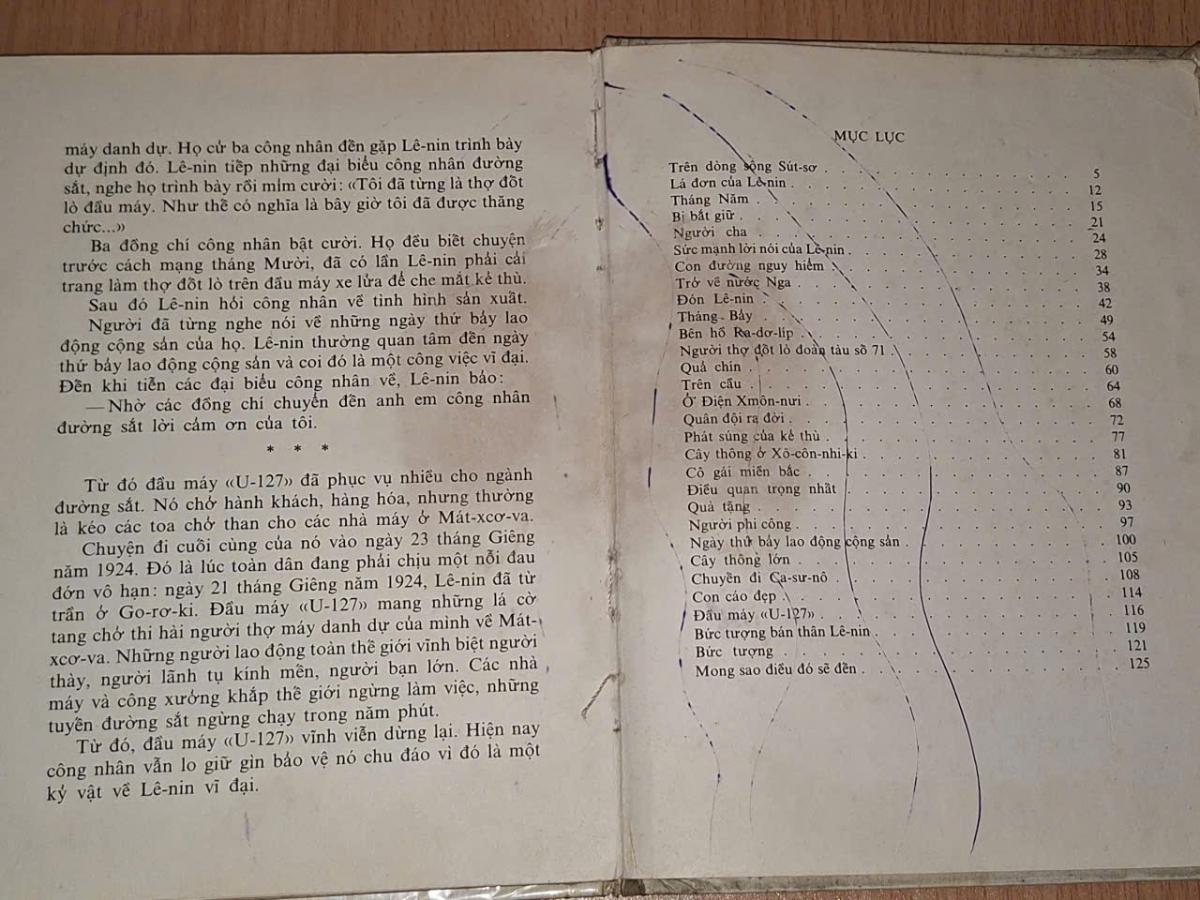 máy danh dự. Họ cử ba công nhân đến gặp Lê-nin trình bày
dự định đó. Lê-nin tiếp những đại biểu công nhân đường
sắt, nghe họ trình bày rồi mỉm cười: «Tôi đã từng là thợ đốt
lò đầu máy. Như thế có nghĩa là bây giờ tôi đã được thăng
chức...»
Ba đồng chí công nhân bật cười. Họ đều biết chuyện
trước cách mạng tháng Mười, đã có lần Lê-nin phải cải
trang làm thợ đốt lò trên đầu máy xe lửa để che mắt kẻ thù.
Sau đó Lê-nin hỏi công nhân về tình hình sản xuất.
Người đã từng nghe nói về những ngày thứ bảy lao
động cộng sản của họ. Lê-nin thường quan tâm đến ngày
thứ bảy lao động cộng sản và coi đó là một công việc vĩ đại.
Đến khi tiễn các đại biểu công nhân về, Lê-nin bảo:
— Nhờ các đồng chí chuyển đến anh em công nhân
đường sắt lời cảm ơn của tôi.
* * *
Từ đó đầu máy «U-127» đã phục vụ nhiều cho ngành
đường sắt. Nó chở hành khách, hàng hóa, nhưng thường
là kéo các toa chở than cho các nhà máy ở Mát-xcơ-va.
Chuyện đi cuối cùng của nó vào ngày 23 tháng Giêng
năm 1924. Đó là lúc toàn dân đang phải chịu một nỗi đau
đớn vô hạn: ngày 21 tháng Giêng năm 1924, Lê-nin đã từ
trần ở Go-rơ-ki. Đầu máy «U-127» mang những lá cờ
tang chở thi hài người thợ máy danh dự của mình về Mát-
xcơ-va. Những người lao động toàn thế giới vĩnh biệt người
thày, người lãnh tụ kính mến, người bạn lớn. Các nhà
máy và công xưởng khắp thế giới ngừng làm việc, những
tuyến đường sắt ngừng chạy trong năm phút.
Từ đó, đầu máy «U-127» vĩnh viễn dừng lại. Hiện nay
công nhân vẫn lo giữ gìn bảo vệ nó chu đáo vì đó là một
kỷ vật về Lê-nin vĩ đại.
MỤC LỤC
Trên dòng sông Sút-sơ . . . 5
Lá đơn của Lê-nin . . . 12
Tháng Năm . . . 15
Bị bắt giữ . . . 21
Người cha . . . 24
Sức mạnh lời nói của Lê-nin . . . 28
Con đường nguy hiểm . . . 34
Trở về nước Nga . . . 38
Đón Lê-nin . . . 42
Tháng Bảy . . . 49
Bên hồ Ra-dơ-líp . . . 54
Người thợ đốt lò đoàn tàu số 71 . . . 58
Quả chín . . . 60
Trên cầu . . . 64
Ở Điện Xmôn-nưi . . . 68
Quân đội ra đời . . . 72
Phát súng của kẻ thù . . . 77
Cây thông ở Xô-côn-nhi-ki . . . 81
Cô gái miền bắc . . . 87
Điều quan trọng nhất . . . 90
Quà tặng . . . 93
Người phi công . . . 97
Ngày thứ bảy lao động cộng sản . . . 100
Cây thông lớn . . . 105
Chuyến đi Ca-sư-nô . . . 108
Con cáo đẹp . . . 114
Đầu máy «U-127» . . . 116
Bức tượng bán thân Lê-nin . . . 119
Bức tượng . . . 121
Mong sao điều đó sẽ đến . . . 125